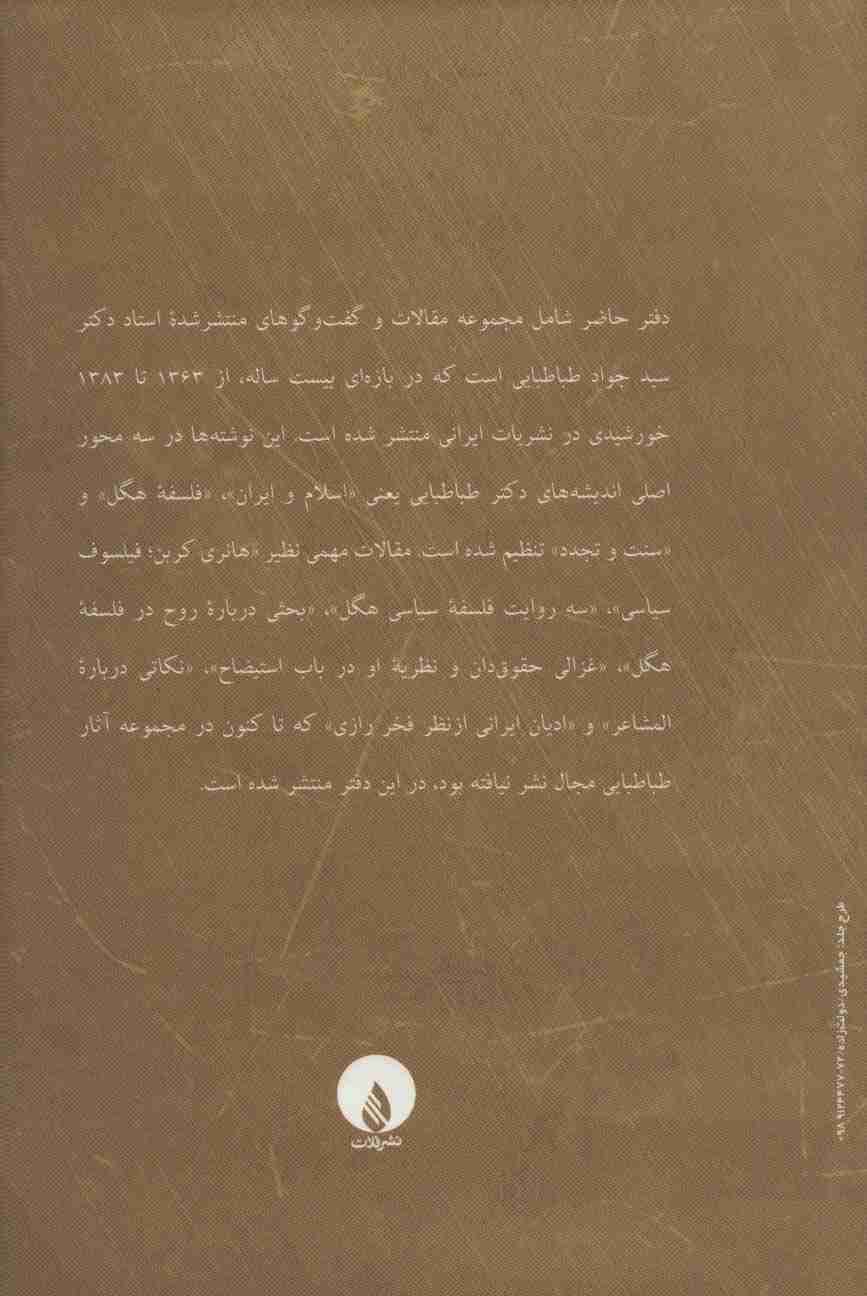 دفتر حاضر شامل مجموعه مقالات و گفت‌وگوهای منتشرشدهٔ استاد دکتر
سید جواد طباطبایی است که در بازه‌ای بیست ساله، از ۱۳۶۳ تا ۱۳۸۳
خورشیدی در نشریات ایرانی منتشر شده است. این نوشته‌ها در سه محور
اصلی اندیشه‌های دکتر طباطبایی یعنی «اسلام و ایران»، «فلسفهٔ هگل» و
«سنت و تجدد» تنظیم شده است. مقالات مهمی نظیر «هانری کربن؛ فیلسوف
سیاسی»، «سه روایت فلسفهٔ سیاسی هگل»، «بحثی دربارهٔ روح در فلسفهٔ
هگل»، «غزالی حقوق‌دان و نظریهٔ او در باب استیضاح»، «نکاتی دربارهٔ
المشاعر» و «ادیان ایرانی ازنظر فخر رازی» که تا کنون در مجموعه آثار
طباطبایی مجال نشر نیافته بود، در این دفتر منتشر شده است.
نشر فلات
طرح جلد: جمشیدی/دولت‌زاده